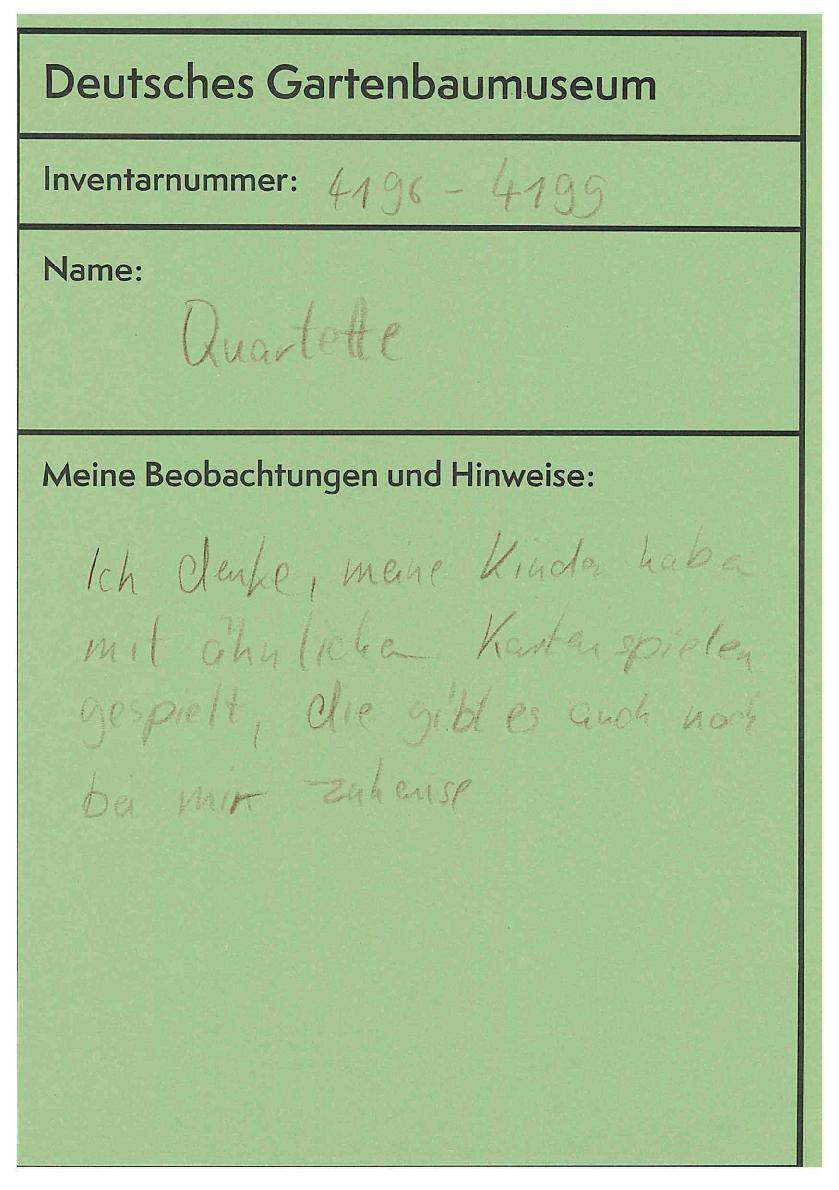 Deutsches Gartenbaumuseum
Inventarnummer: 4196 - 4199
Name:
Quartette
Meine Beobachtungen und Hinweise:
Ich denke, meine Kinder haben
mit ähnlichen Kartenspielen
gespielt, die gibt es auch noch
bei mir zuhause